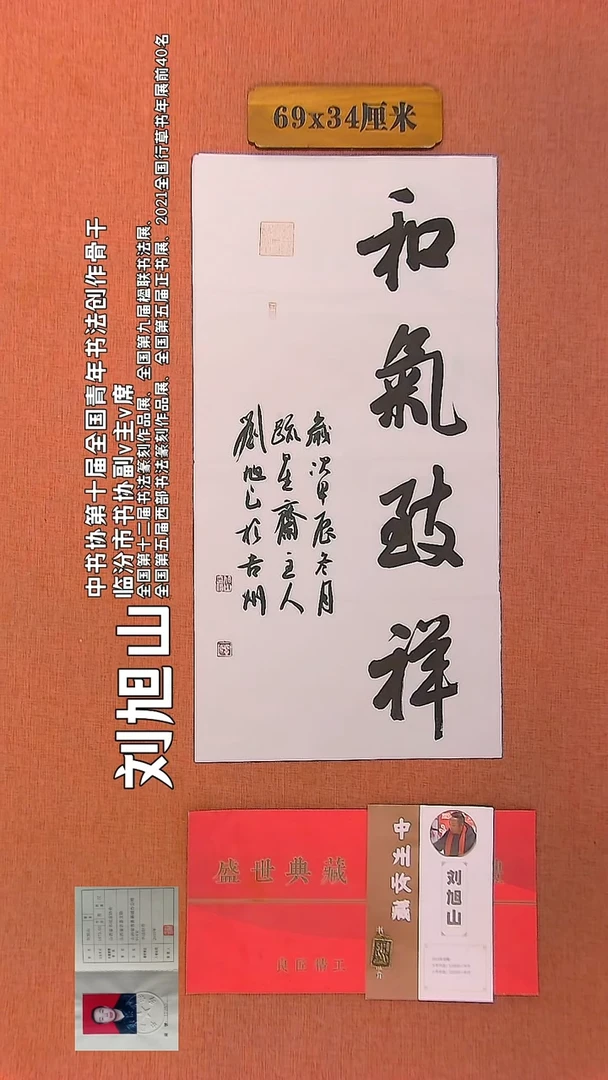 69x34厘米
和氣致祥
歲次甲辰冬月
疏星齋主人
劉旭山於古州
中书协第十届全国青年书法创作骨干
临汾市书协副v主v席
全国第十二届书法篆刻作品展、全国第九届楹联书法展、
全国第五届西部书法篆刻作品展、全国第五届正书展、2021全国行草书年展前40名
刘旭山
盛世典藏
中州收藏
刘旭山